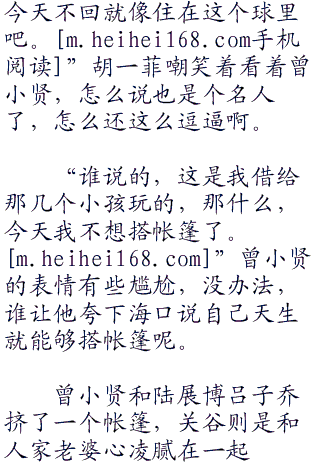 今天不回就像住在这个球里
吧。[m.heihei168.com手机
阅读]”胡一菲嘲笑着看着曾
小贤，怎么说也是个名人
了，怎么还这么逗逼啊。
“谁说的，这是我借给
那几个小孩玩的，那什么，
今天我不想搭帐篷了。
[m.heihei168.com]”曾小贤
的表情有些尴尬，没办法，
谁让他夸下海口说自己天生
就能够搭帐篷呢。
曾小贤和陆展博吕子乔
挤了一个帐篷，关谷则是和
人家老婆心凌腻在一起